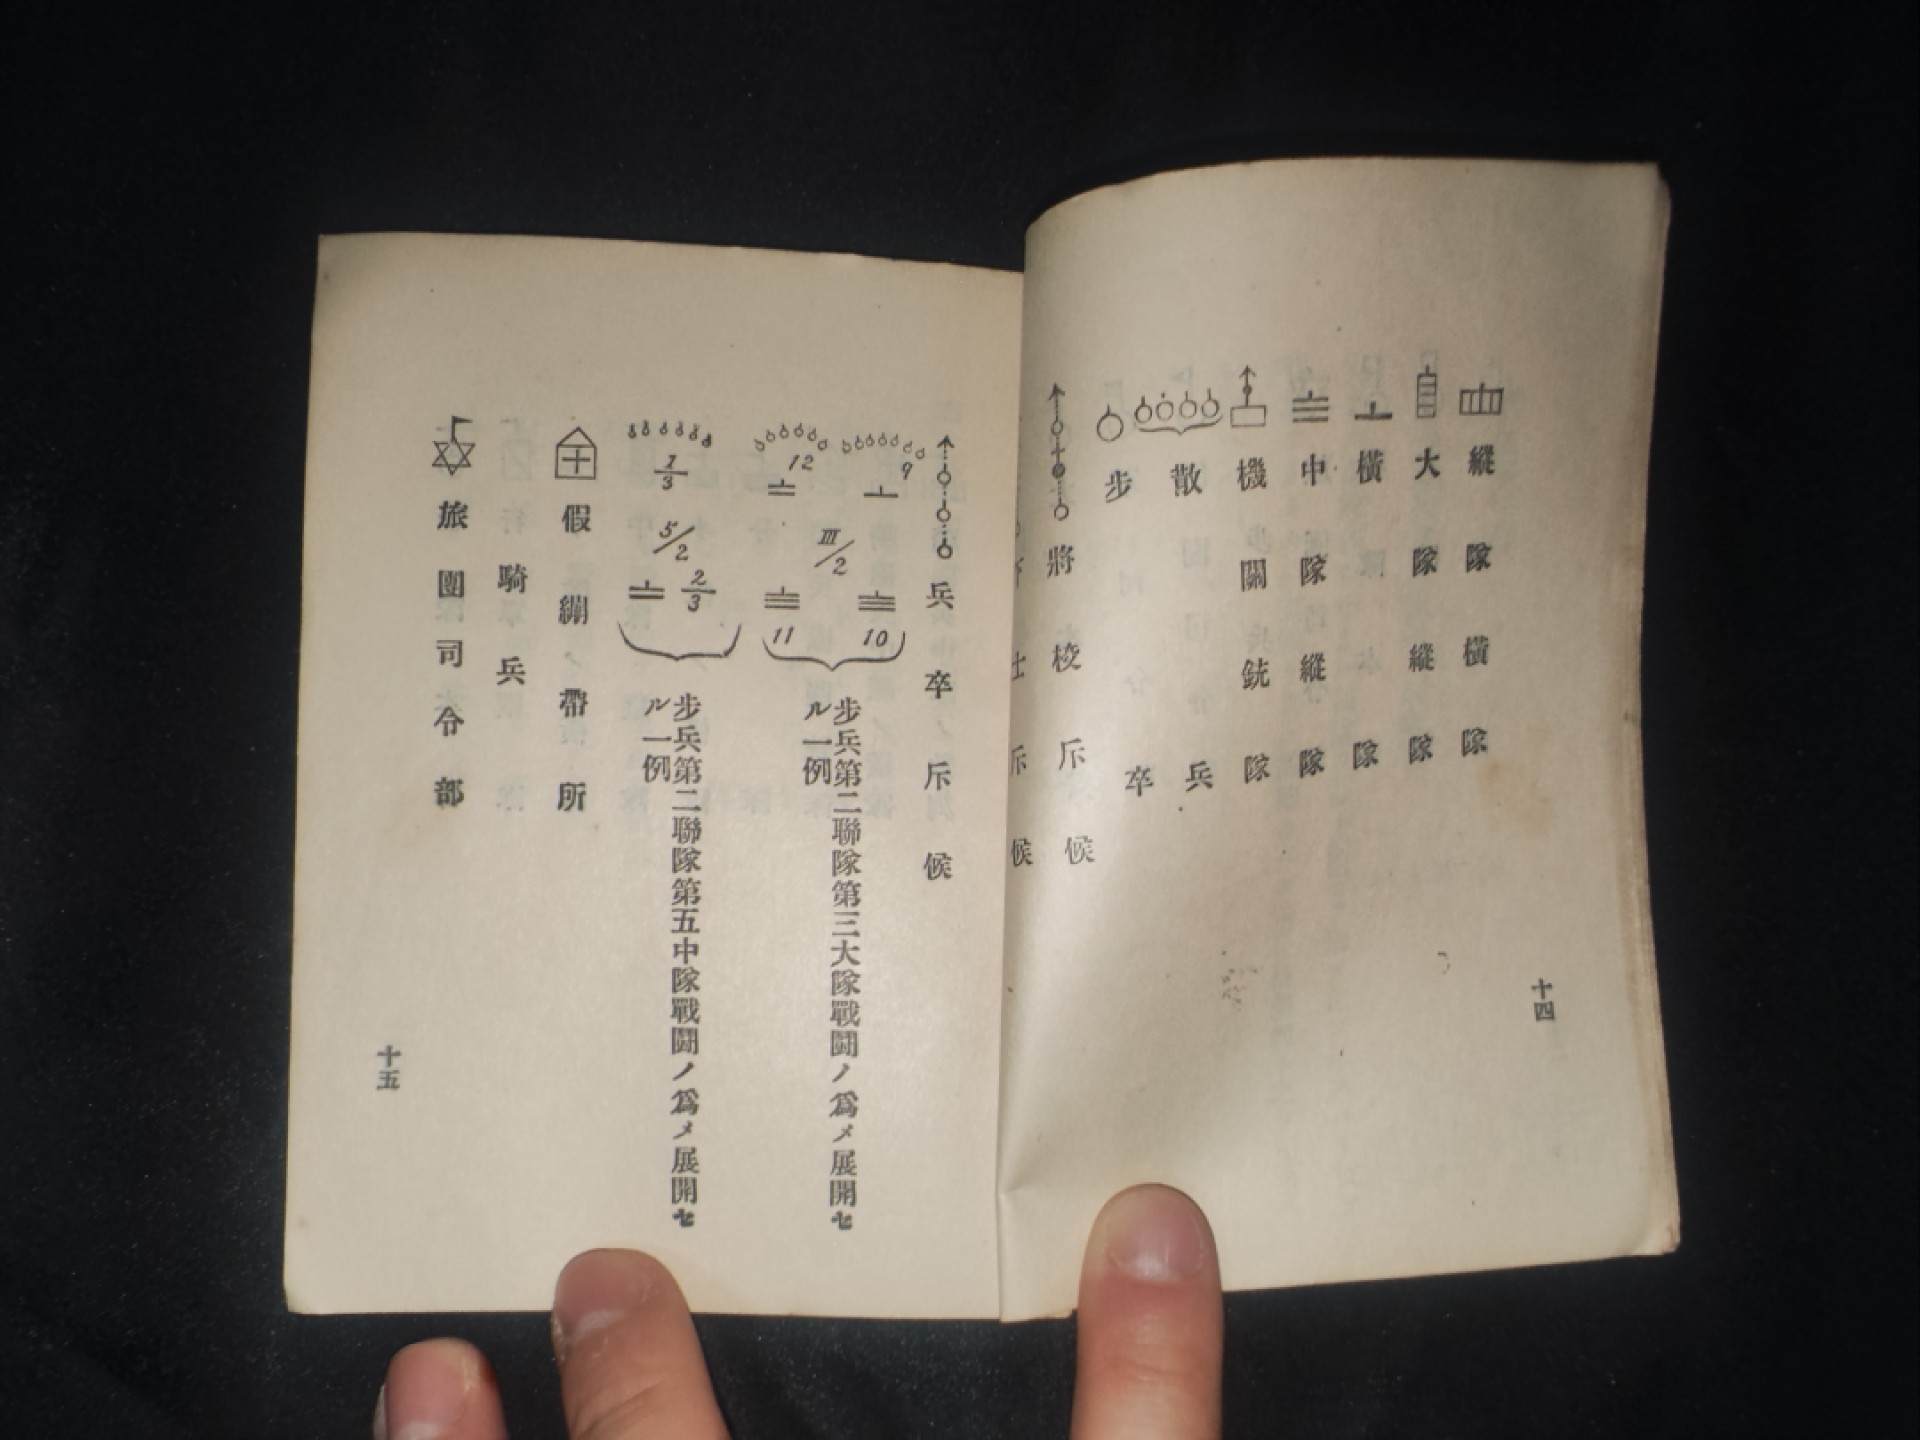 縱隊橫隊
大隊縱隊
橫隊
中隊縱隊
機關銃隊
散兵
步卒
將校斥候
士斥候
十四
兵卒斥候
9
12
Ⅲ/2
10
11
步兵第二聯隊第三大隊戰鬪ノ爲メ展開セ
ル一例
1/3
5/2
2/3
步兵第二聯隊第五中隊戰鬪ノ爲メ展開セ
ル一例
假繃帶所
騎兵
旅團司令部
十五